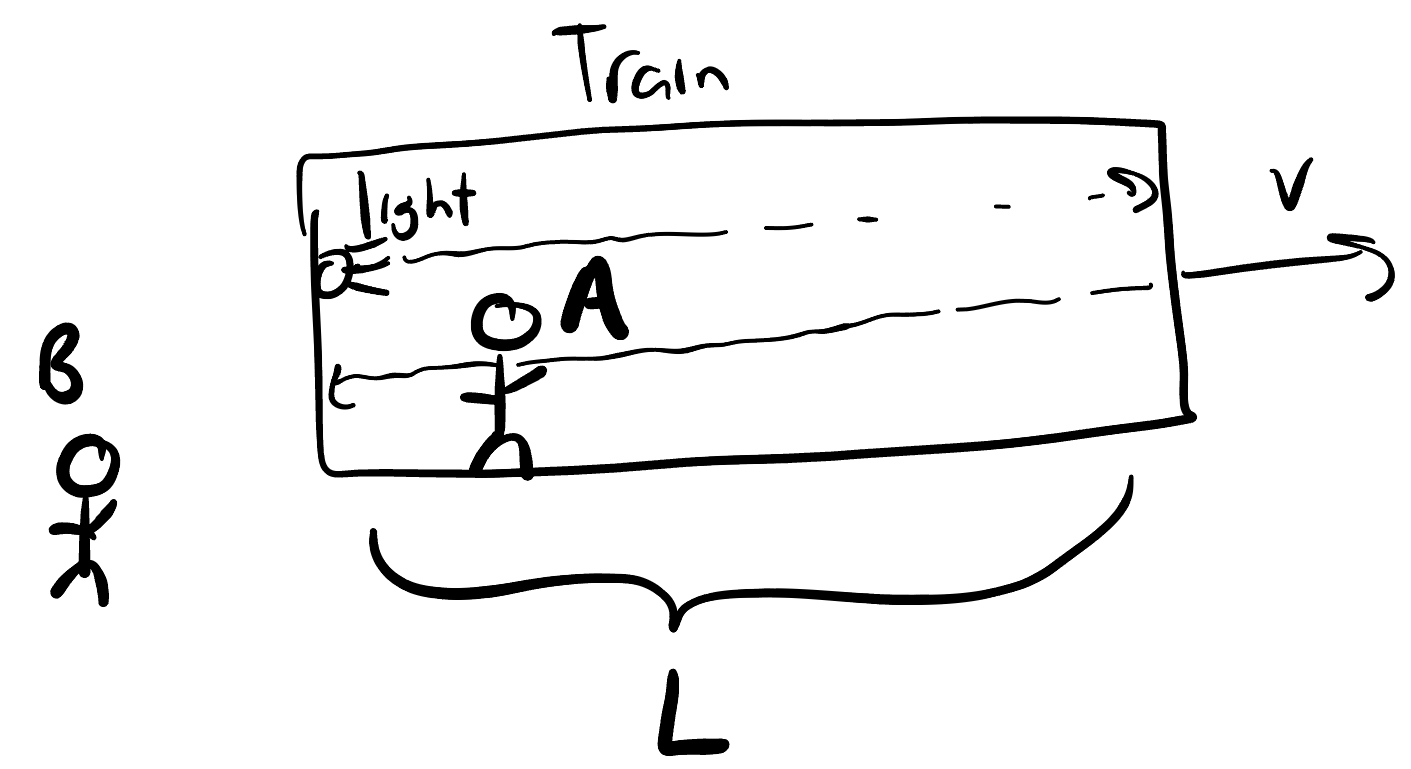 Train
light
V
A
B
L